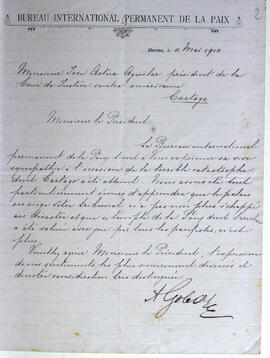 2
BUREAU INTERNATIONAL PERMANENT DE LA PAIX
Berne, le 11 Mai 1910
Monsieur José Astua Aguilar président de la
Cour de Justice centre américaine
Cartago
Monsieur le Président,
Le Bureau international
permanent de la Paix tient à vous exprimer sa vive
sympathie à l'occasion de la terrible catastrophe
dont Cartago a été atteint. Nous avons été tout
particulièrement d'apprendre que le palais
où siège votre tribunal n'a pas non plus échappé
au désastre et que ce temple de la Paix dont
a été saluée avec par tous les pacifistes, n'est
plus.
Veuillez agréer, Monsieur le Président, l'expression
de nos sentiments les plus sincèrement dévoués et
de notre considération très distinguée.
A Gobat